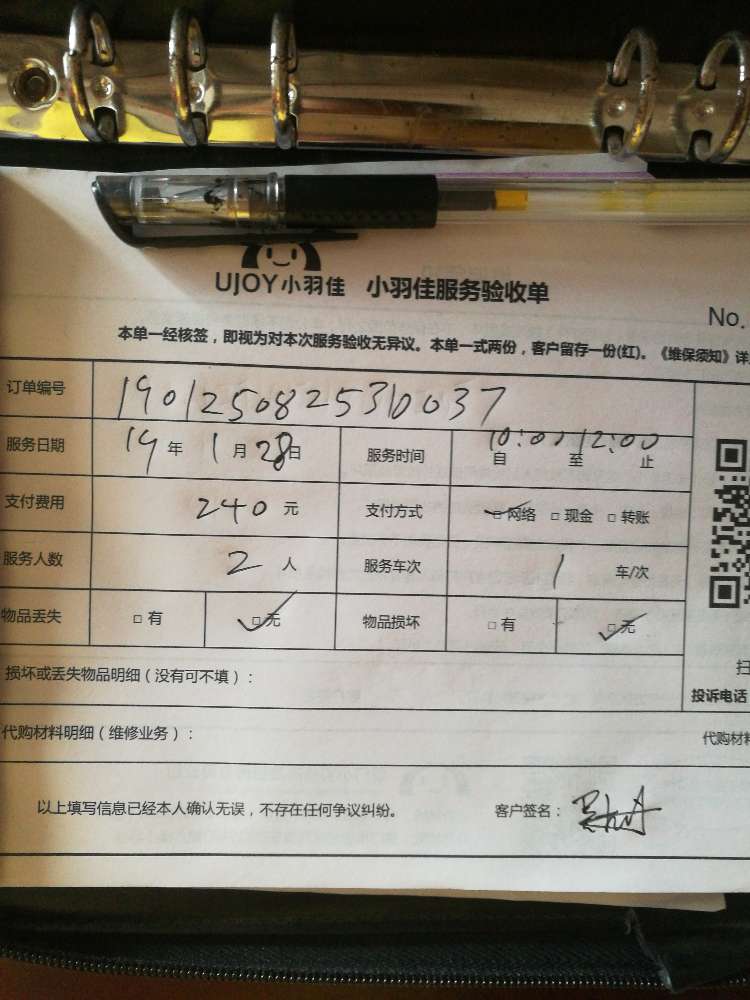 UJOY小羽佳 小羽佳服务验收单
No.
本单一经核签，即视为对本次服务验收无异议。本单一式两份，客户留存一份(红)。《维保须知》详
订单编号 1901250825310037
服务日期 19年 1月 28日 服务时间 10:00 12:00 自 至 止
支付费用 240 元 支付方式 □网络 □现金 □转账
服务人数 2 人 服务车次 1 车/次
物品丢失 □有 □无 物品损坏 □有 □无
损坏或丢失物品明细（没有可不填）：
投诉电话
代购材料明细（维修业务）： 代购材料
以上填写信息已经本人确认无误，不存在任何争议纠纷。 客户签名：